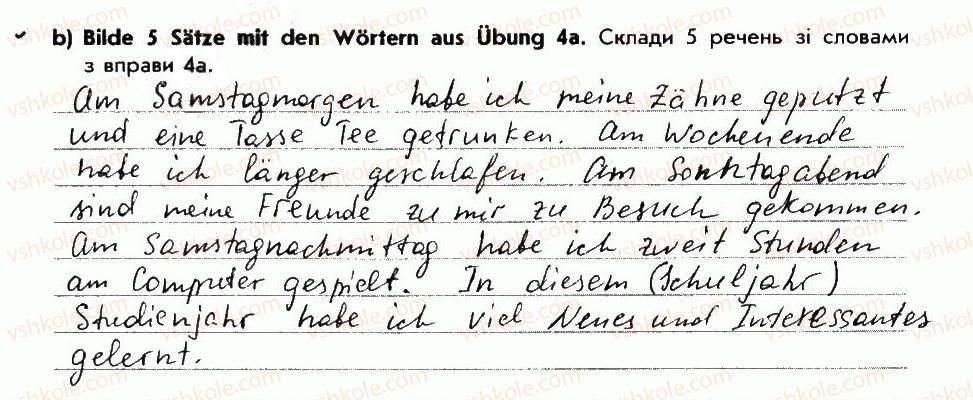 b) Bilde 5 Sätze mit den Wörtern aus Übung 4a. Склади 5 речень зі словами
з вправи 4a.
Am Samstagmorgen habe ich meine Zähne geputzt
und eine Tasse Tee getrunken. Am Wochenende
habe ich länger geschlafen. Am Sonntagabend
sind meine Freunde zu mir zu Besuch gekommen.
Am Samstagnachmittag habe ich zweit Stunden
am Computer gespielt. In diesem (Schuljahr)
Studienjahr habe ich viel Neues und Interessantes
gelernt.